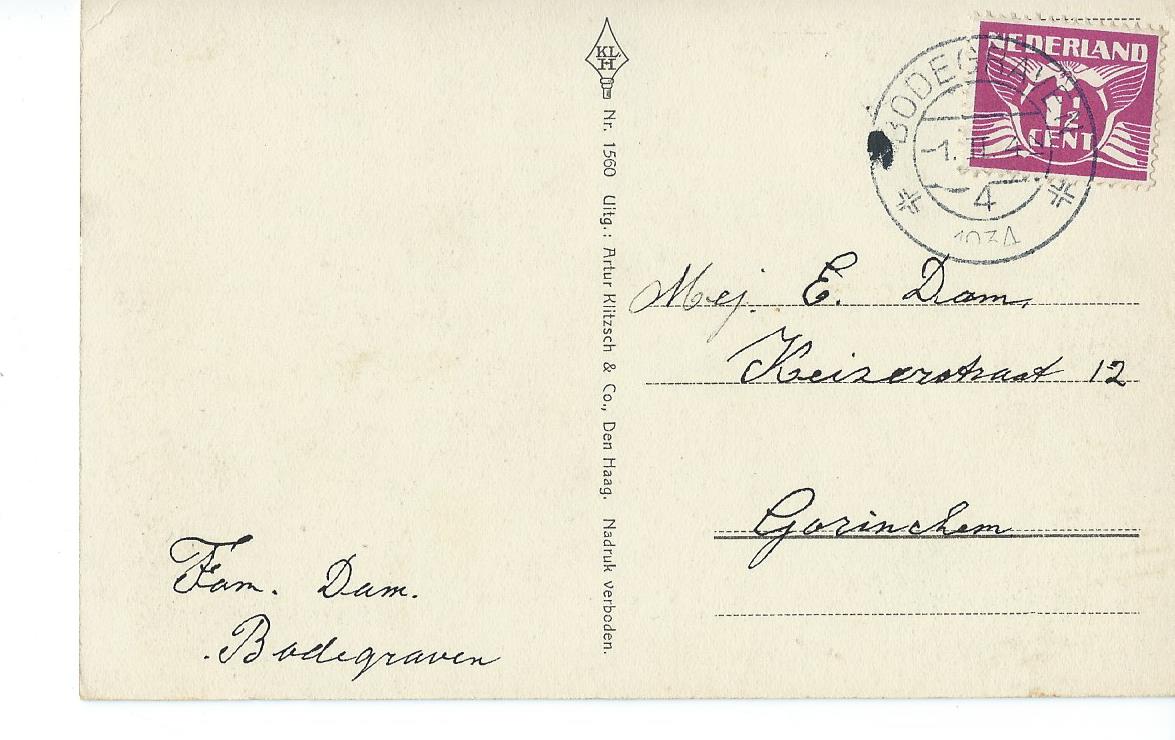 KL.
H
Nr. 1560 Uitg.: Artur Klitzsch & Co., Den Haag. Nadruk verboden.
NEDERLAND
1½
CENT
BODEGRAVEN
4
1934
Mej. E. Dam,
Keizerstraat 12
Gorinchem
Fam. Dam.
Bodegraven